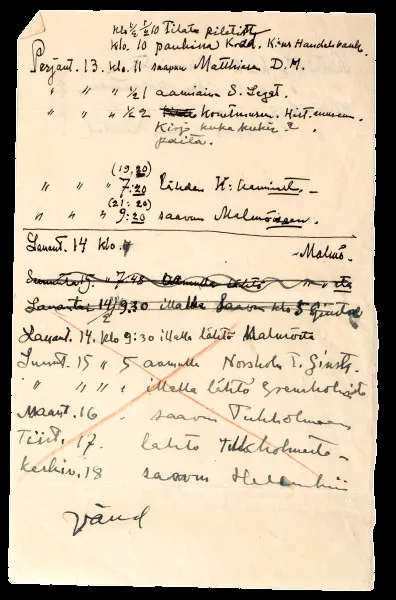 klo ½ 10 Tilata piletit
klo. 10 pankissa Kbh. Handelsbank.
Perjant. 13. klo. 11 saapuu Matthiesen D. M.
" " " ½ 1 aamiainen S. Legat.
" " " ½ 2 Kunstmuseu. Hist. museum.
Kirj. kuka kukin?
paita.
(19.20)
" " 7:20 lähden K:
(21:20)
" " " 9:20 saavun Malmöseen.
Lauant. 14 klo.
-Malmö-
Sunnunt. 15. " 7 aamulla lähtö
Lauantai 14/ 9.30 illalla Saavun klo 5
Lauant. 14. klo 9:30 illalla lähtö Malmöstä
Sunnt. 15 " 5 aamulla Norsholm
" " " illalla lähtö
Maant. 16 - saavun Tukholmaan
Tiist. 17. lähtö Tukholmasta -
Keskiv. 18 saavun Helsinkiin
Vänd